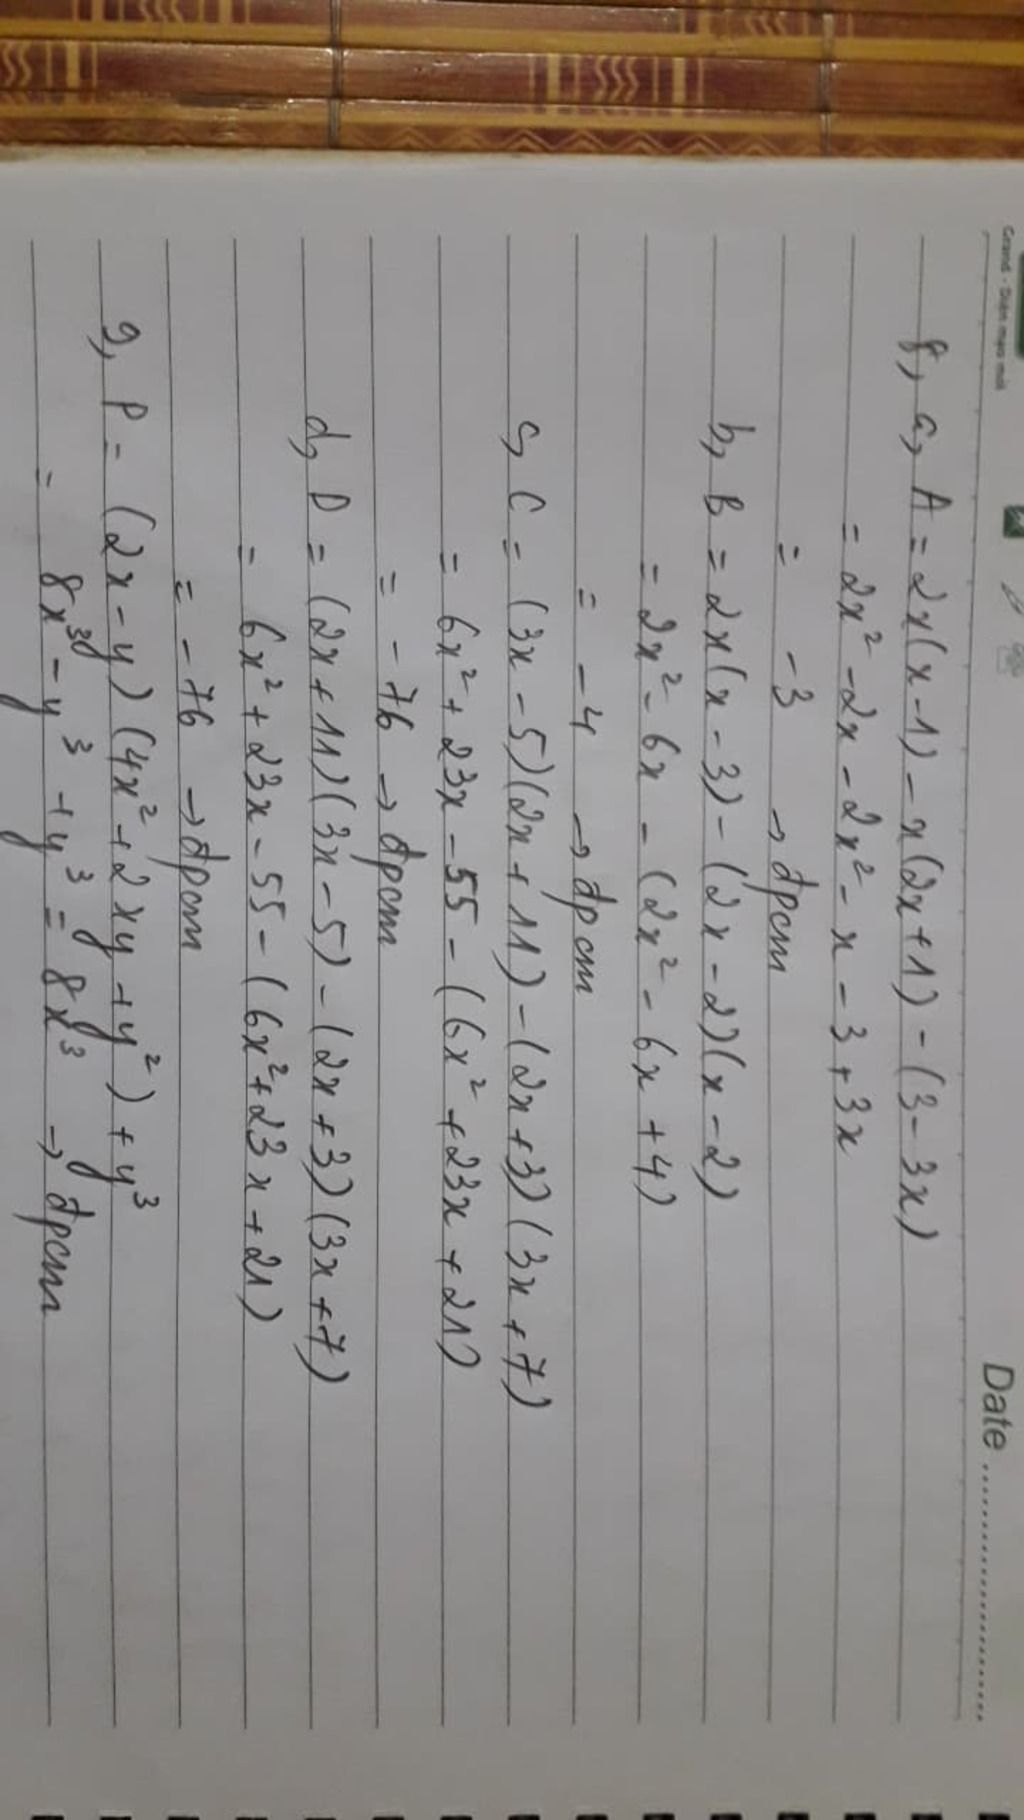 Grand - Diện mạo mới
Date ..............................
8, a, A = 2x(x-1) - x(2x+1) - (3-3x)
= 2x² - 2x - 2x² - x - 3 + 3x
= -3 → đpcm
b, B = 2x(x-3) - (2x-2)(x-2)
= 2x² - 6x - (2x² - 6x + 4)
= -4 → đpcm
c, C = (3x-5)(2x+11) - (2x+3)(3x+7)
= 6x² + 23x - 55 - (6x² + 23x + 21)
= -76 → đpcm
d, D = (2x+11)(3x-5) - (2x+3)(3x+7)
= 6x² + 23x - 55 - (6x² + 23x + 21)
= -76 → đpcm
9, P = (2x-y)(4x² + 2xy + y²) + y³
= 8x³ - y³ + y³ = 8x³ → đpcm